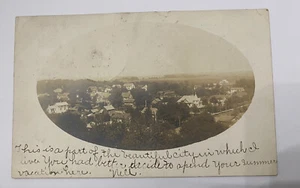 This is a part of the beautiful city in which I
live. You had bett. decide to spend Your summer
vacation here. Nell.